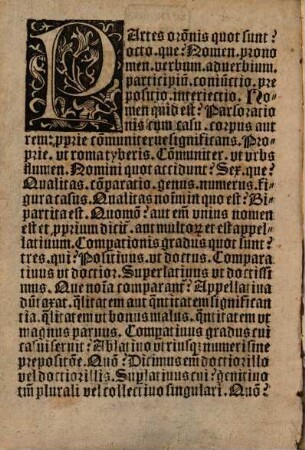 PArtes orõnis quot sunt?
octo. que? Nomen. prono
men. verbum. aduerbium.
participiũ. coniũctio. pre
positio. interiectio. No⸗
men quid est? Pars oratio
nis cum casu. corpus aut
rem: pprie cõmuniterue significans. Pro⸗
prie. vt roma tyberis. Cõmuniter. vt vrbs
flumen. Nomini quot accidunt? Sex. que?
Qualitas. cõparatio. genus. numerus. fi⸗
gura casus. Qualitas nominũ quo est? Bi⸗
partita est. Quomõ? aut em̃ vnius nomen
est et pprium dicit᷑. aut multoꝝ et est appel⸗
latiuum. Compationis gradus quot sunt?
tres. qui? Positiuus. vt doctus. Compara
tiuus vt doctior. Superlatiuus vt doctissi
mus. Que noĩa comparant᷑? Appellatiua
dũtaxat. q̃litatem aut q̃ntitatem significan
tia. q̃litatem vt bonus malus. q̃ntitatem vt
magnus paruus. Compatiuus gradus cui
casui seruit? Ablatiuo vtriusqꝫ numeri sine
prepositõne. Quõ? Dicimus em̃ doctior illo
vel doctior illis. Suplatiuus cui? genitiuo
tm̃ plurali vel collectiuo singulari. Quõ?